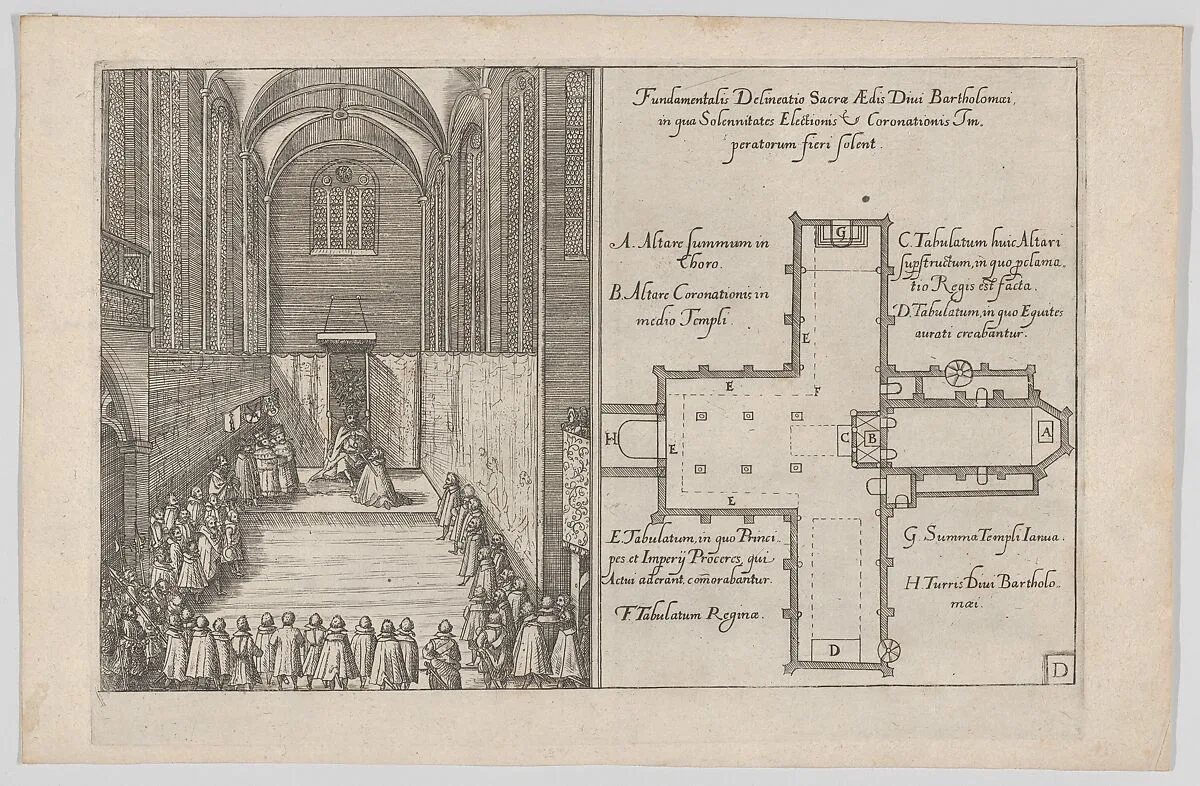 Fundamentalis Delineatio Sacræ Ædis Diui Bartholomæi,
in qua Solennitates Electionis & Coronationis Im-
peratorum fieri solent.
A. Altare summum in
Choro.
B. Altare Coronationis in
medio Templi.
C. Tabulatum huic Altari
supstructum, in quo pclama-
tio Regis est facta.
D. Tabulatum, in quo Equites
aurati creabantur.
G
E
E
F
H
E
C
B
A
E
E. Tabulatum, in quo Princi-
pes et Imperÿ Proceres, qui
Actui aderant, comorabantur.
F. Tabulatum Reginæ.
G. Summa Templi Ianua.
H. Turris Diui Bartholo-
mæi.
D
D